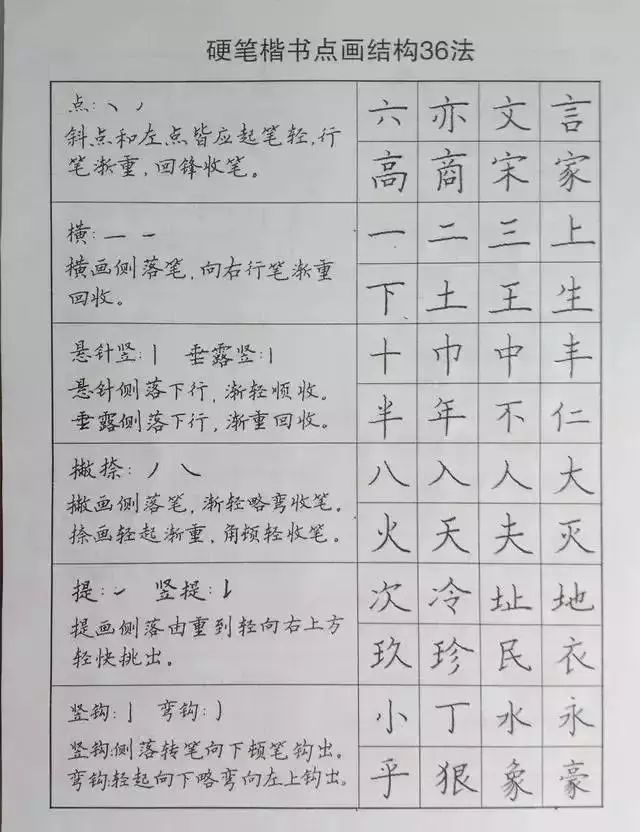 硬笔楷书点画结构36法
点:丶 丿
斜点和左点皆应起笔轻,行
笔渐重,回锋收笔。
六 亦 文 言
高 商 宋 家
横:一 一
横画侧落笔,向右行笔渐重
回收。
一 二 三 上
下 土 王 生
悬针竖:丨 垂露竖:丨
悬针侧落下行,渐轻顺收。
垂露侧落下行,渐重回收。
十 巾 中 丰
半 年 不 仁
撇捺:丿 ㇏
撇画侧落笔,渐轻略弯收笔。
捺画轻起渐重,角顿轻收笔。
八 入 人 大
火 天 夫 灭
提:㇀ 竖提:𠄌
提画侧落由重到轻向右上方
轻快挑出。
次 冷 址 地
玖 珍 民 衣
竖钩:亅 弯钩:㇁
竖钩:侧落转笔向下顿笔钩出。
弯钩:轻起向下略弯向左上钩出。
小 丁 水 永
乎 狠 象 豪